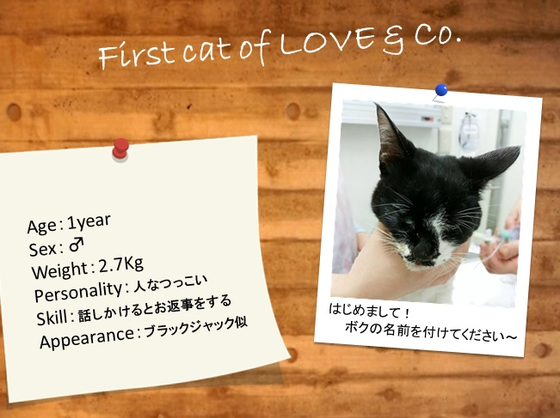 First cat of LOVE & Co.
Age：1year
Sex：♂
Weight：2.7Kg
Personality：人なつっこい
Skill：話しかけるとお返事をする
Appearance：ブラックジャック似
はじめまして！
ボクの名前を付けてください～